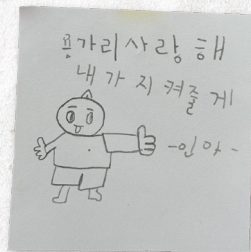 용가리사랑해
내가지켜줄게
-인아-